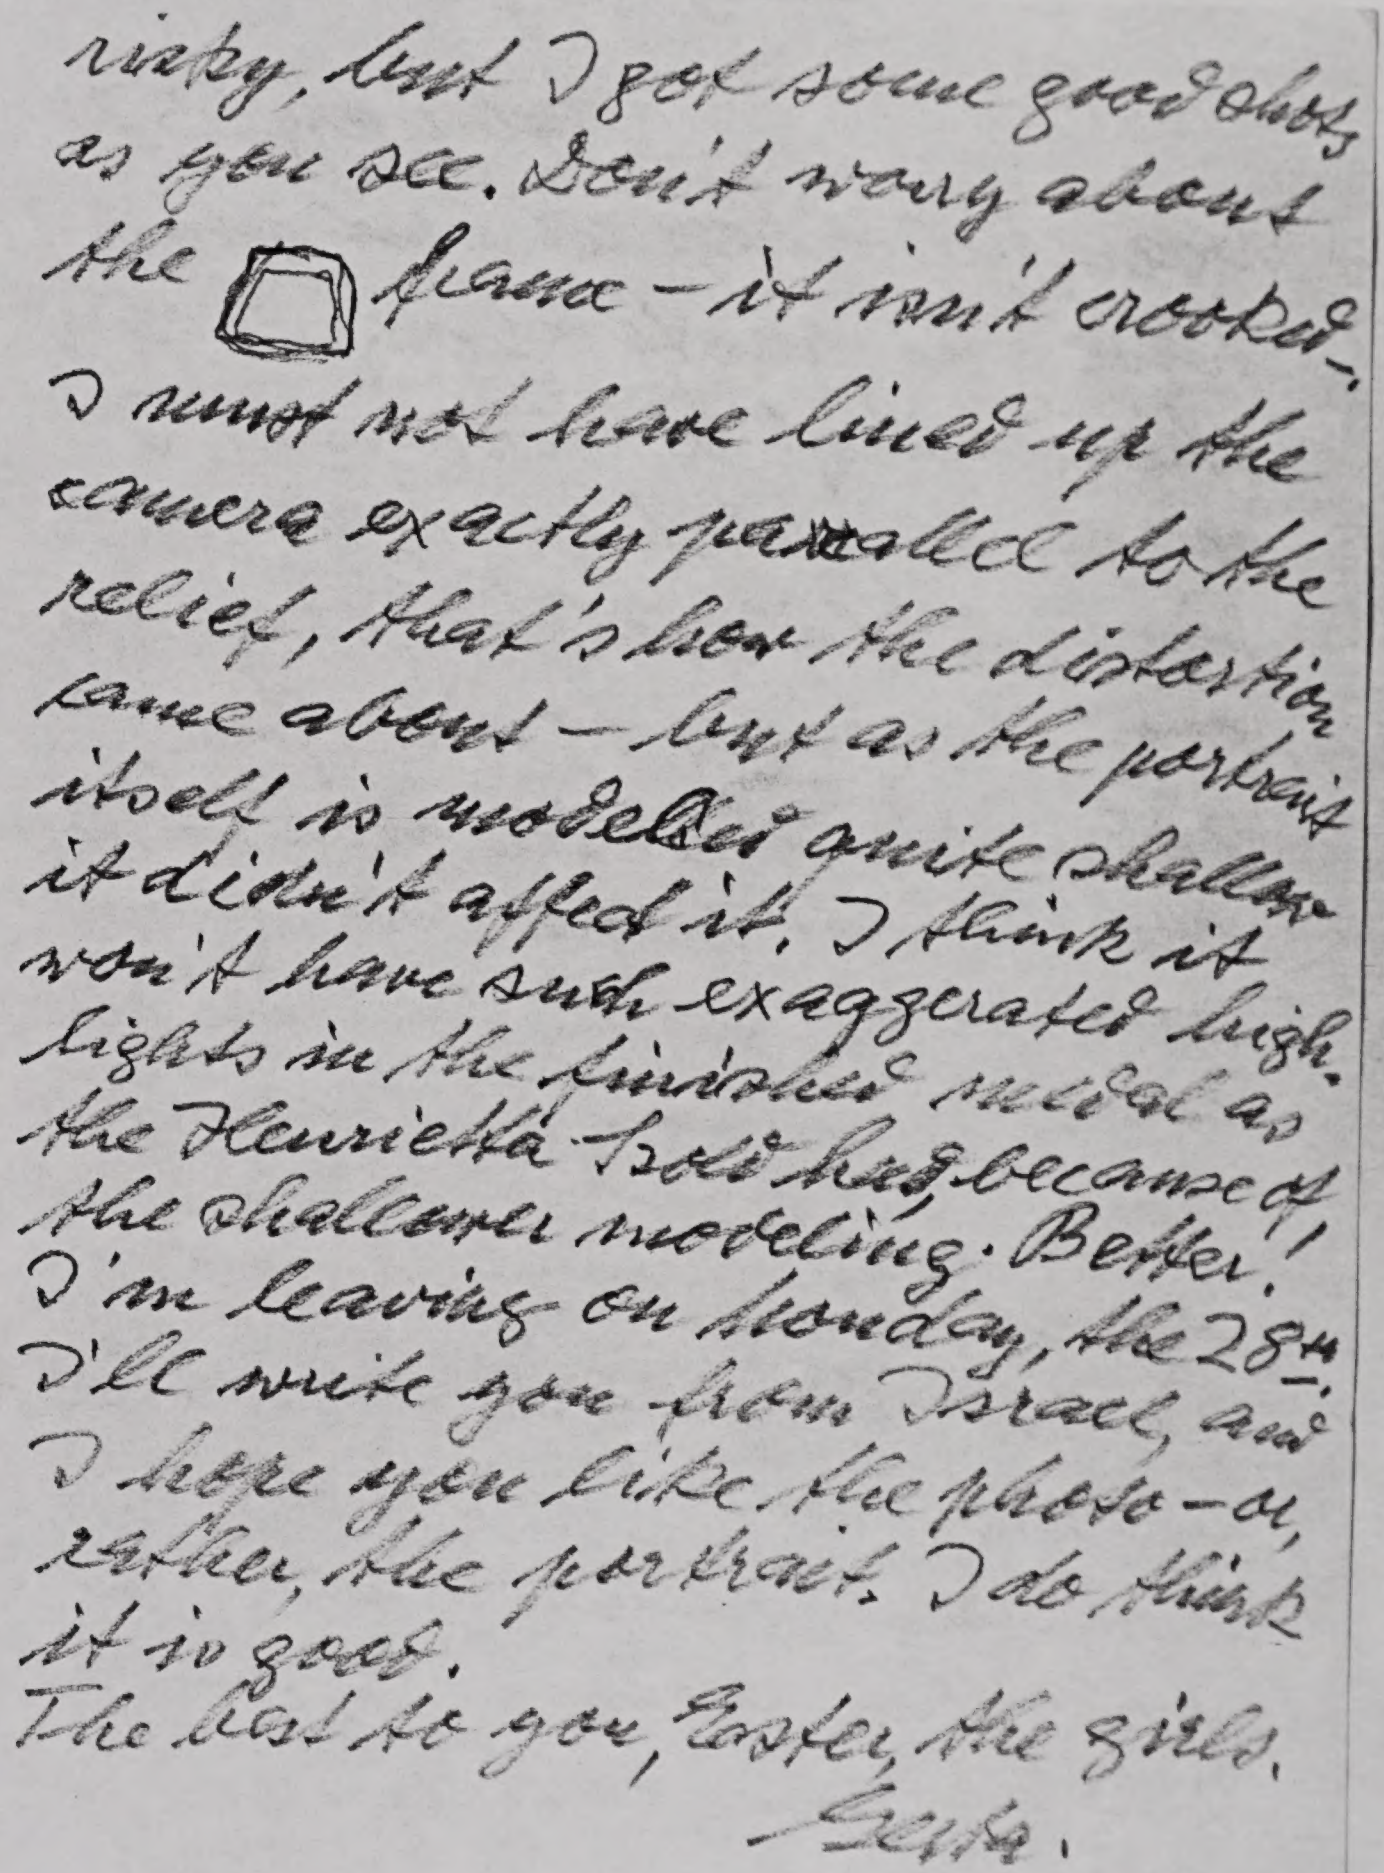 risky, but I got some good shots,
as you see. Don't worry about
the frame – it isn't crooked –.
I must not have lined up the
camera exactly parallel to the
relief, that's how the distortion
came about – but as the portrait
itself is modeled quite shallow
it didn't affect it. I think it
won't have such exaggerated high-
lights in the finished medal as
the Henrietta Szold has, because of
the shallower modeling. Better!
I'm leaving on Monday, the 28th.
I'll write you from Israel, and
I hope you like the photo – or,
rather, the portrait. I do think
it is good.
The best to you, Ester, the girls.
Gerta.